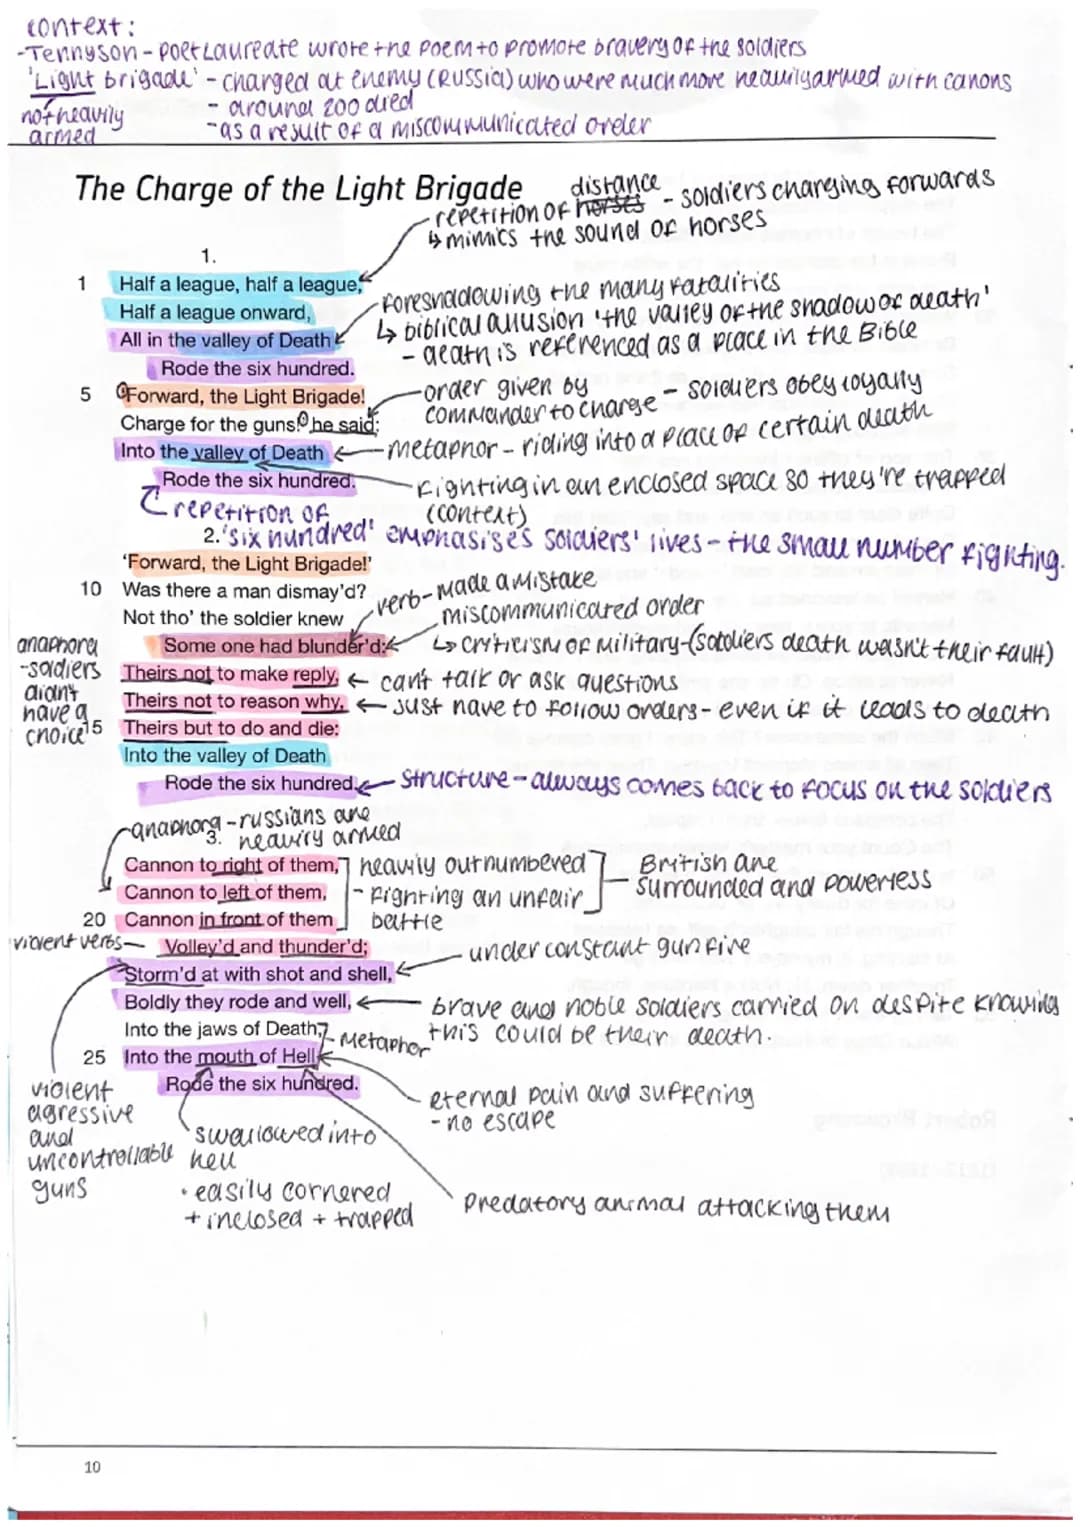 context:
-Tennyson - poet Laureate wrote the poem to promote bravery of the soldiers
'Light brigade' - charged at enemy (Russia) who were much more heavily armed with canons
not heavily armed
- around 200 died
- as a result of a miscommunicated order
The Charge of the Light Brigade
repetition of horses distance - soldiers charging forwards
↳ mimics the sound of horses
1.
1 Half a league, half a league,
Half a league onward,
All in the valley of Death
Rode the six hundred.
foreshadowing the many fatalities
↳ biblical allusion 'the valley of the shadow of death'
- death is referenced as a place in the Bible
5 'Forward, the Light Brigade!
Charge for the guns!' he said:
Into the valley of Death
Rode the six hundred.
order given by commander to charge - soldiers obey loyally
metaphor - riding into a place of certain death
fighting in an enclosed space so they're trapped (context)
repetition of 'six hundred' emphasises soldiers' lives - the small number fighting.
2.
'Forward, the Light Brigade!'
10 Was there a man dismay'd?
Not tho' the soldier knew
Some one had blunder'd:
verb - made a mistake
miscommunicated order
↳ criticism of military - (soldiers death wasn't their fault)
Theirs not to make reply,
Theirs not to reason why,
15 Theirs but to do and die:
Into the valley of Death
Rode the six hundred.
anaphora
- soldiers didn't have a choice
← can't talk or ask questions
← Just have to follow orders - even if it leads to death
structure - always comes back to focus on the soldiers
anaphora - russians are heavily armed
3.
Cannon to right of them,
Cannon to left of them,
20 Cannon in front of them
Volley'd and thunder'd;
Storm'd at with shot and shell,
Boldly they rode and well,
Into the jaws of Death,
25 Into the mouth of Hell
Rode the six hundred.
heavily outnumbered
- fighting an unfair battle
British are surrounded and powerless
violent verbs
under constant gun fire
brave and noble soldiers carried on despite knowing this could be their death.
Metaphor
eternal pain and suffering
- no escape
violent agressive and uncontrollable guns
swallowed into hell
• easily cornered + inclosed + trapped
Predatory animal attacking them
10